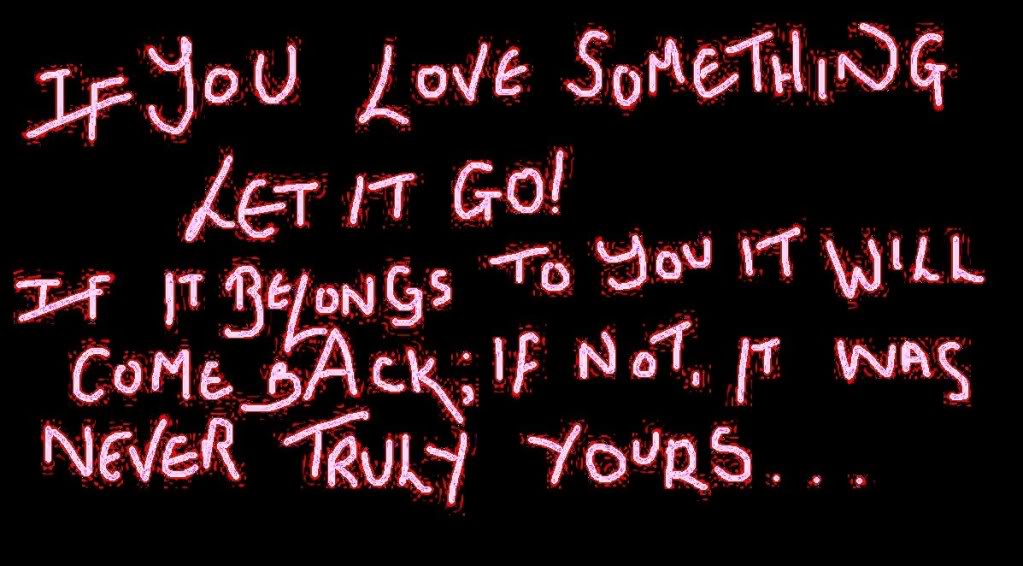 IF YOU LOVE SOMETHING
LET IT GO!
IF IT BELONGS TO YOU IT WILL
COME BACK; IF NOT, IT WAS
NEVER TRULY YOURS...